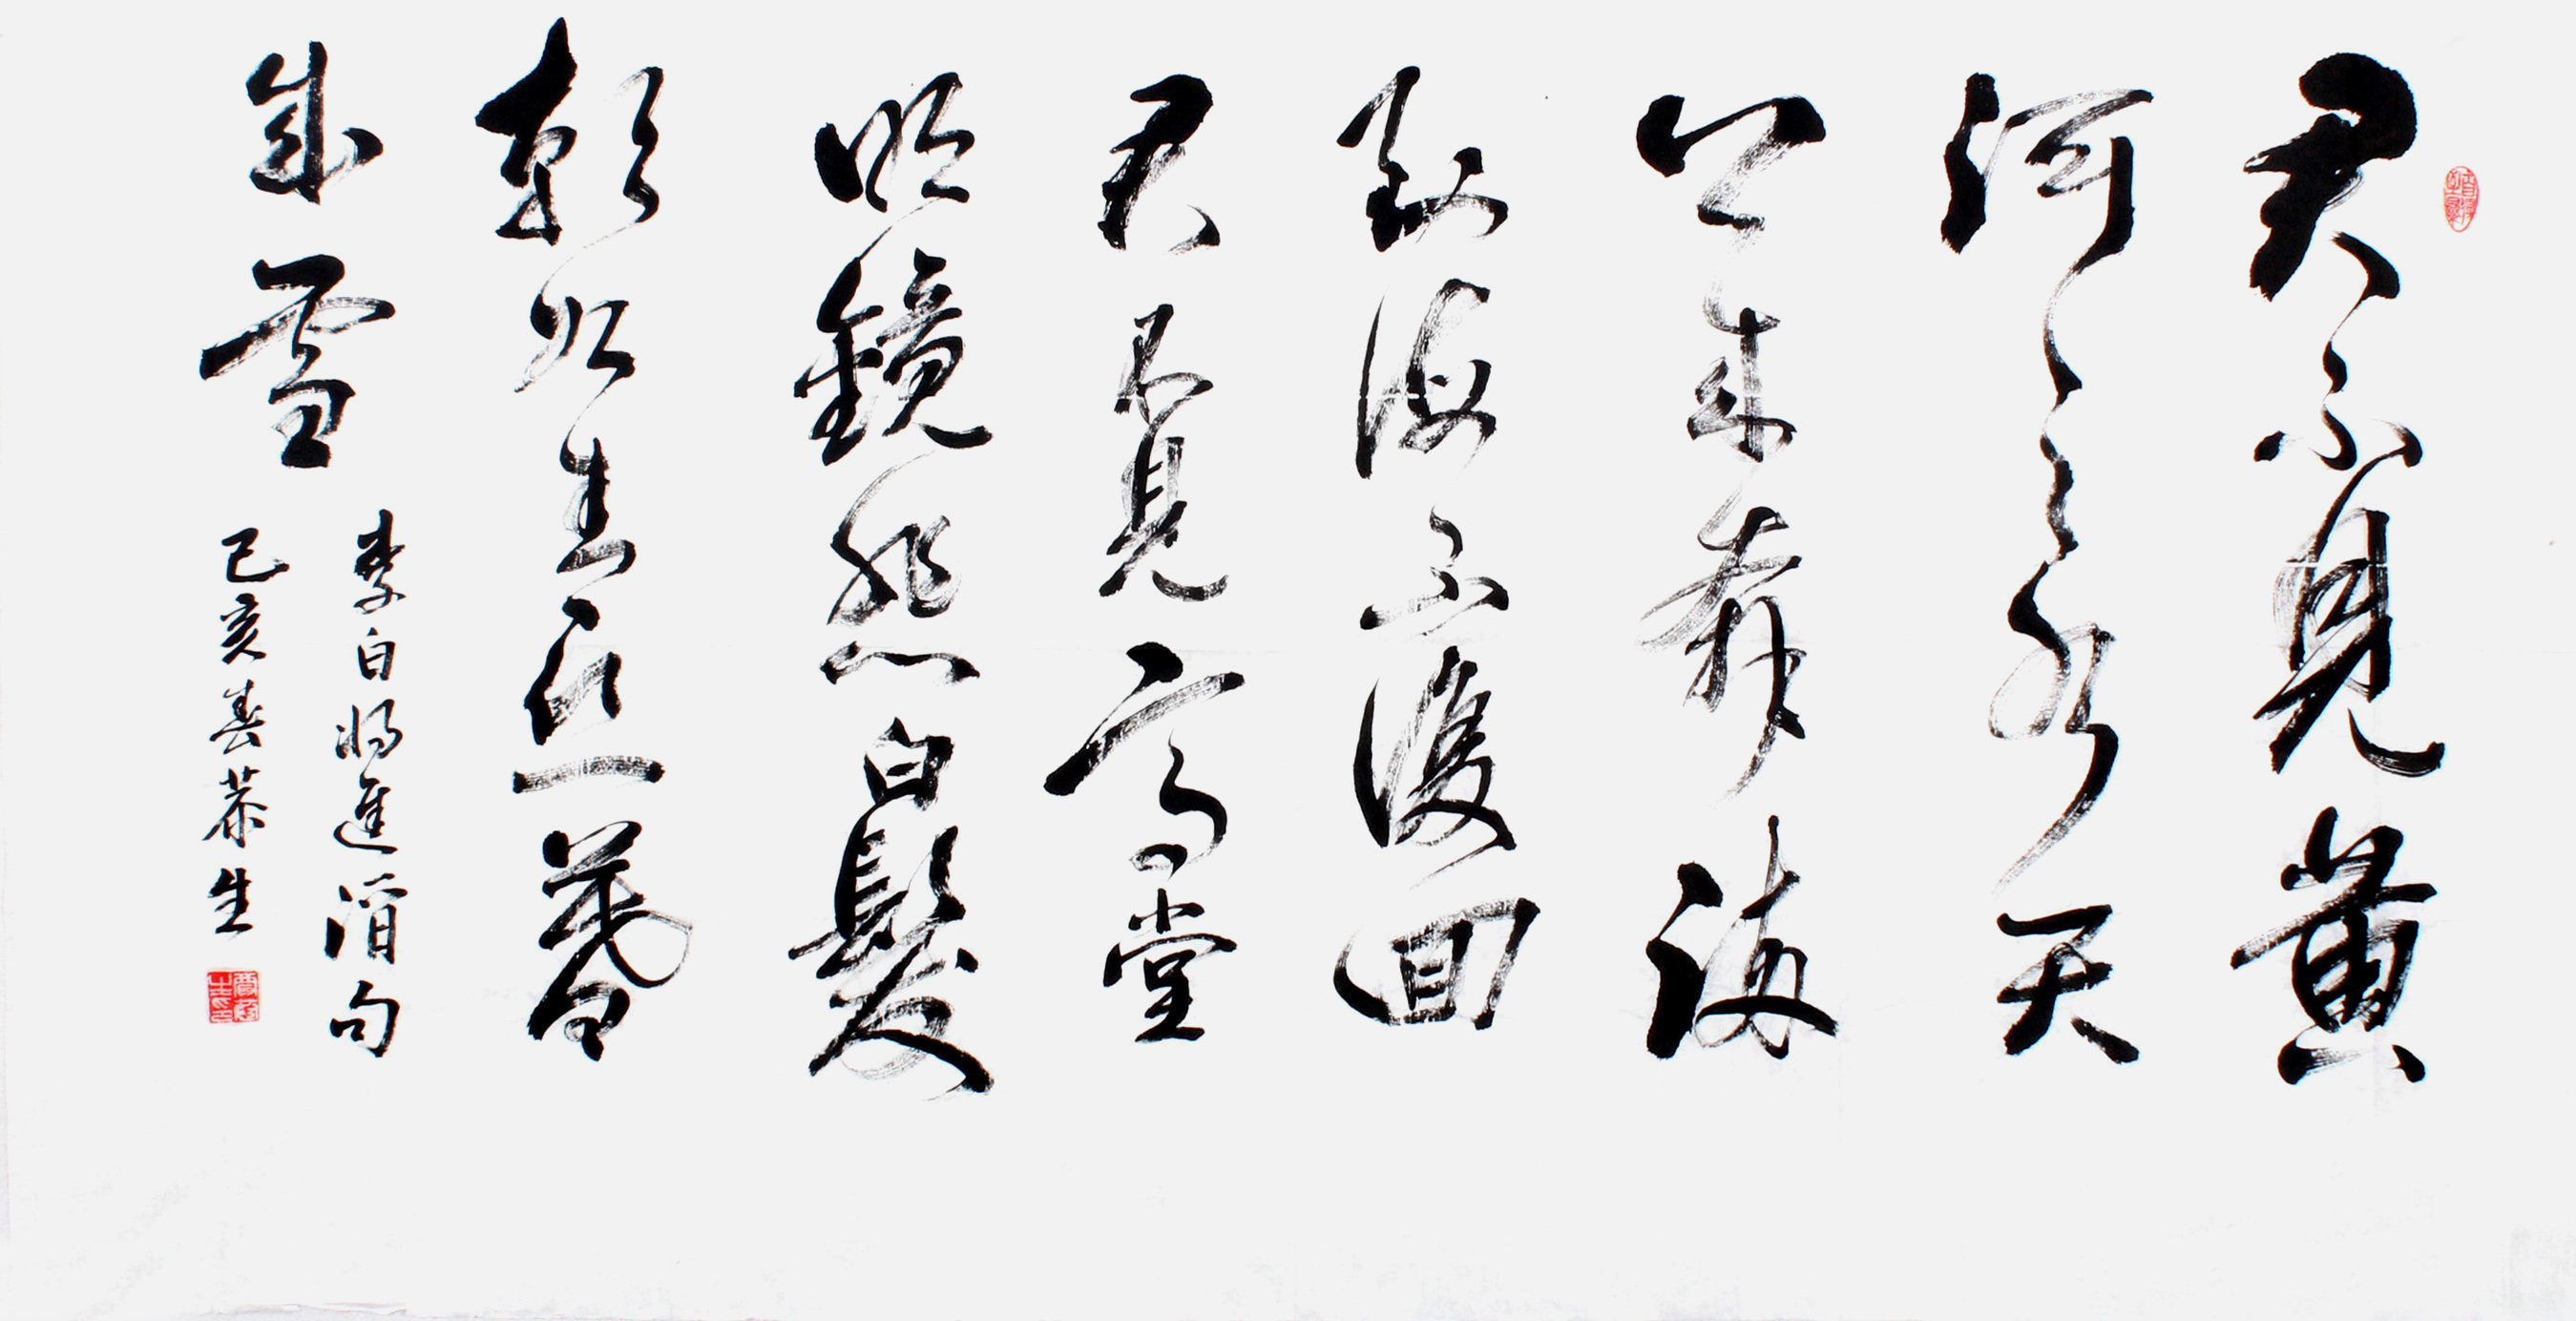 君不見黄
河之水天
上来奔流
到海不復回
君不見高堂
明鏡悲白髮
朝如青丝暮
成雪
李白将進酒句
己亥春恭生